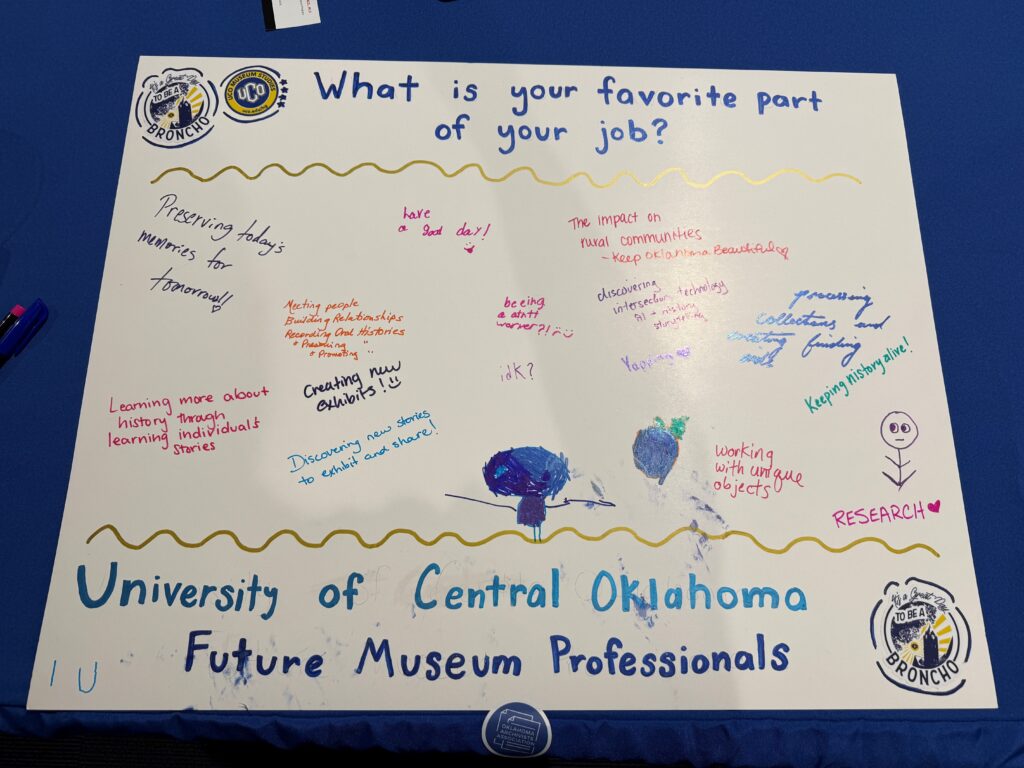 What is your favorite part
of your job?
It's a Great Day
TO BE A
BRONCHO
UCO MUSEUM STUDIES
UCO
Preserving today's
memories for
tomorrow!!
have
a good day!
The impact on
rural communities
- Keep Oklahoma Beautiful
discovering
intersection technology
AI + history
storytelling
processing
collections and
creating finding
aids
Meeting people
Building Relationships
Recording Oral Histories
* Preserving "
* Promoting "
beeing
a
idk?
Yapping
Keeping history alive!
Creating new
exhibits!
Learning more about
history through
learning individuals
stories
Discovering new stories
to exhibit and share!
working
with unique
objects
RESEARCH
University of Central Oklahoma
Future Museum Professionals
I U
It's a Great Day
TO BE A
BRONCHO
OKLAHOMA
ARCHIVISTS
ASSOCIATION